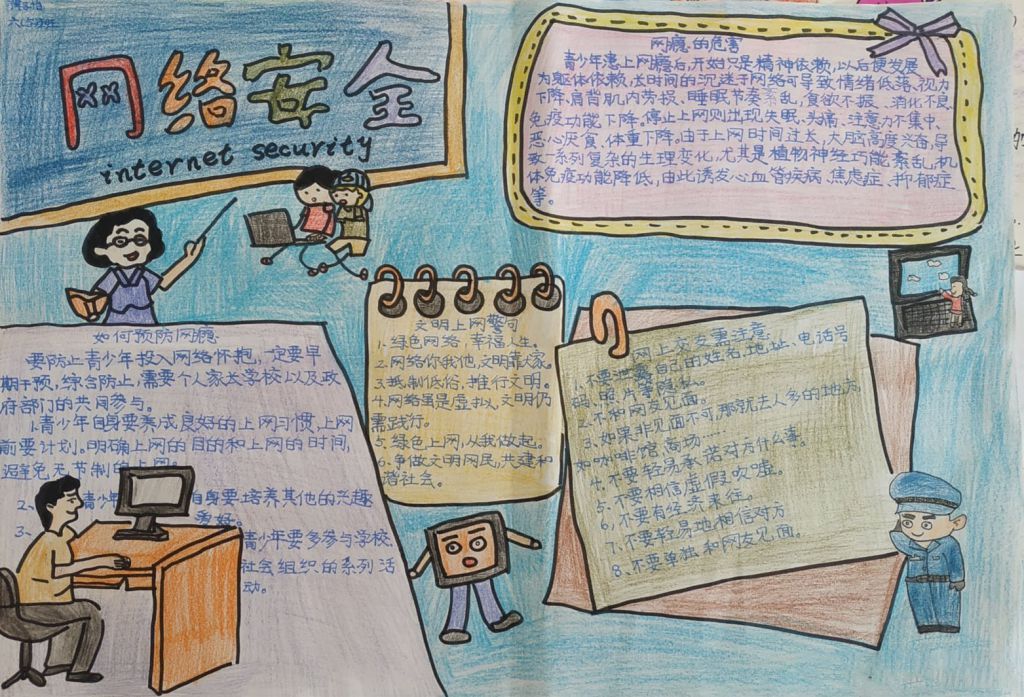 网络安全
internet security
网瘾的危害
青少年患上网瘾后,开始只是精神依赖,以后便发展
为躯体依赖,长时间的沉迷于网络可导致情绪低落、视力
下降、肩背肌肉劳损、睡眠节奏紊乱,食欲不振、消化不良、
免疫功能下降。停止上网则出现失眠、头痛、注意力不集中、
恶心厌食、体重下降。由于上网时间过长,大脑高度兴奋,导
致一系列复杂的生理变化,尤其是植物神经功能紊乱,机
体免疫功能降低,由此诱发心血管疾病、焦虑症、抑郁症
等。
如何预防网瘾
要防止青少年投入网络怀抱,一定要早
期干预,综合防止,需要个人家大学校以及政
府部门的共同参与。
1.青少年自身要养成良好的上网习惯,上网
前要计划。明确上网的目的和上网的时间,
避免无节制的上网
2、青少年自身要培养其他的兴趣
爱好。
3、青少年要多参与学校、
社会组织的系列活
动。
文明上网警句
1、绿色网络,幸福人生。
2.网络你我他,文明靠大家。
3.抵制低俗,推行文明。
4.网络虽是虚拟,文明仍
需践行。
5、绿色上网,从我做起。
6、争做文明网民,共建和
谐社会。
网上交友要注意
1、不要泄露自己的姓名、地址、电话号
码、照片等隐私。
2、不和网友见面。
3、如果非见面不可,那就去人多的地方,
如咖啡馆、商场……
4、不要轻易承诺对方什么事。
5、不要相信虚假吹嘘。
6、不要有经济来往。
7、不要轻易地相信对方
8、不要单独和网友见面。